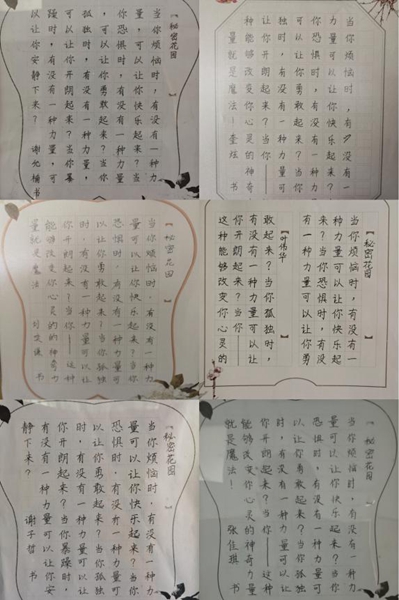 【秘密花园】
当你烦恼时，有没有一种力
量，可以让你快乐起来？当
你恐惧时，有没有一种力量
，可以让你勇敢起来？当你
孤独时，有没有一种力量，
可以让你开朗起来？当你暴
躁时，有没有一种力量，可
以让你安静下来？ 谢 楠书
当你烦恼时，有没有一
力量可以让你快乐起来？当
你恐惧时，有没有一种力量
可以让你勇敢起来？当你孤
独时，有没有一种力量可以
你开朗起来？当你——
种能够改变你心灵的神奇力
量就是魔法！董炫 书
【秘密花园】
当你烦恼时，有没有一种力
量可以让你快乐起来？当你
恐惧时，有没有一种力量可
以让你勇敢起来？当你孤独
时，有没有一种力量可以让
你开朗起来？当你——这种
能够改变你心灵的神奇力
量就是魔法 刘文谦 书
【秘密花园】
当你烦恼时，有没有一
种力量可以让你快乐起
来？当你恐惧时，有没
有一种力量可以让你勇
【叶伟华】
敢起来？当你孤独时，
有没有一种力量可以让
你开朗起来？当你——
这种能够改变你心灵的
【秘密花园】
当你烦恼时，有没有一种力
量可以让你快乐起来？当你
恐惧时，有没有一种力量可
以让你勇敢起来？当你孤独
时，有没有一种力量可以让
你开朗起来？当你暴躁时，
有没有一种力量可以让你安
静下来？ 谢子哲 书
【秘密花园】
当你烦恼时，有没有一种力
量可以让你快乐起来？当你
恐惧时，有没有一种力量可
以让你勇敢起来？当你孤独
时，有没有一种力量可以让
你开朗起来？当你——这种
能够改变你心灵的神奇力量
就是魔法！ 张佳琪 书